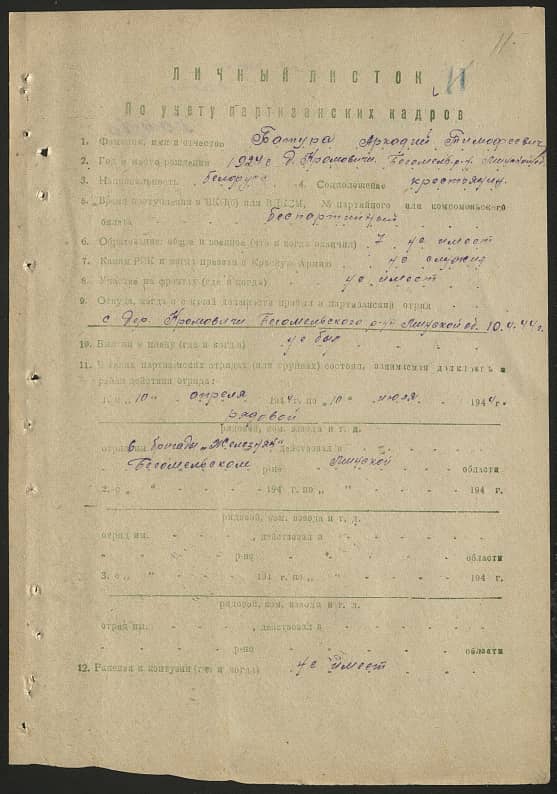 11
ЛИЧНЫЙ ЛИСТОК 11
По учету партизанских кадров
1. Фамилия, имя и отчество Батура Аркадий Тимофеевич
2. Год и место рождения 1924 г. д. Крамовичи Бегомельс. р-н Минской
3. Национальность белорус 4. Соцположение крестьянин
5. Время вступления в ВКП(б) или ВЛКСМ, № партийного или комсомольского
билета Беспартийный
6. Образование: общее и военное (что и когда окончил) 7 не имеет
7. Каким РВК и когда призван в Красную Армию не служил
8. Участие на фронтах (где и когда) не имеет
9. Откуда, когда и с какой должности прибыл в партизанский отряд
с дер. Крамовичи Бегомельского р-на Минской об. 10.4.44 г.
10. Был ли в плену (где и когда) не был
11. В каких партизанских отрядах (или группах) состоял, занимаемая должность и
район действия отряда:
1. с „10“ апреля 1944 г. по „10“ июля 1944 г.
рядовой
рядовой, ком. взвода и т. д.
отряд им. в бригаде „Железняк“ действовал в
Бегомельском р-не Минской области
2. с „ “ 194 г. по „ “ 194 г.
рядовой, ком. взвода и т. д.
отряд им. , действовал в
р-не области
3. с „ “ 194 г. по „ “ 194 г.
рядовой, ком. взвода и т. д.
отряд им. , действовал в
р-не области
12. Ранения и контузии (где и когда) не имеет